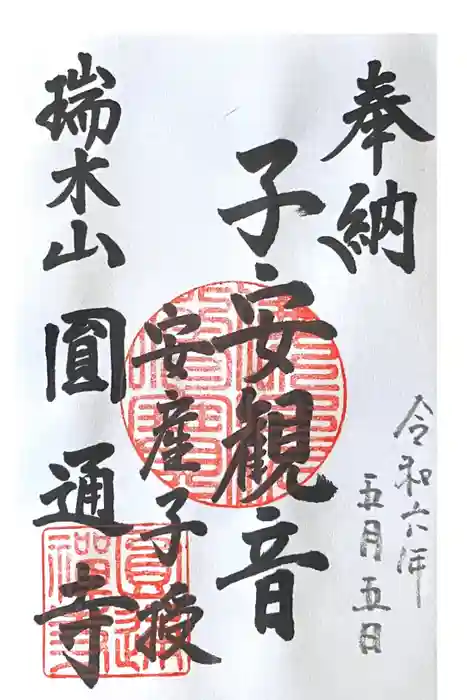 奉納
令和六年
五月五日
子安観音
安産子授
瑞木山 圓通寺